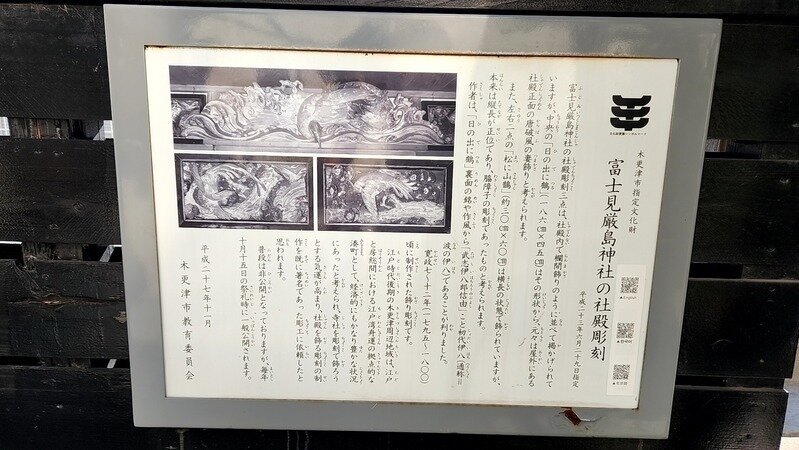 文化財愛護シンボルマーク
木更津市指定文化財
富士見厳島神社の社殿彫刻
平成二十三年六月二十九日指定
富士見厳島神社の社殿彫刻三点は、社殿内で欄間飾りのように並べて掲げられて
いますが、中央の「日の出に鶴」(一八六㎝×四五㎝)はその形状から、元々は屋外にある
社殿正面の唐破風の妻飾りと考えられます。
また、左右二点の「松に山鵲」(約三〇㎝×六〇㎝)は横長の状態で飾られていますが、
本来は縦長が正位であり、脇障子の彫刻であったものと考えられます。
作者は、「日の出に鶴」裏面の銘や作風から「武志伊八郎信由」こと初代伊八(通称＝
波の伊八)であることが判りました。
寛政七〜十二年(一七九五〜一八〇〇)
頃に制作された飾り彫刻です。
江戸時代後期の木更津周辺地域は、江戸
と房総間における江戸湾舟運の拠点的な
湊町として、経済的にもかなり豊かな状況
にあったと考えられ、寺社を彫刻で飾ろう
とする気運が高まり、社殿を飾る彫刻の制
作を既に著名であった彫工に依頼したと
思われます。
普段は非公開となっておりますが、毎年
十月十五日の祭礼時に一般公開されます。
平成二十七年十一月
木更津市教育委員会
▲English
▲한국어